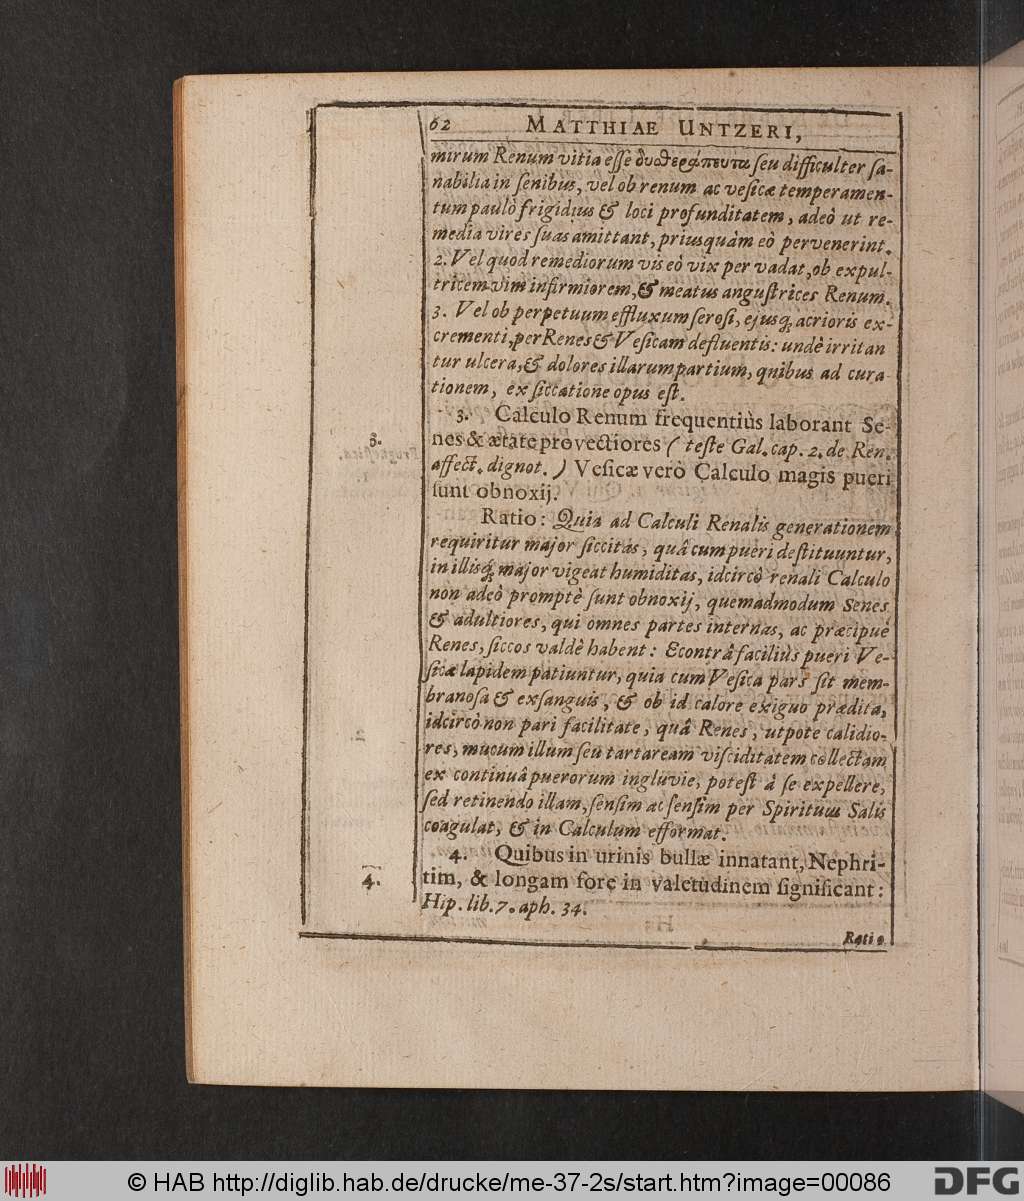 62 MATTHIAE UNTZERI,
mirum Renum vitia eſſe δυσθεράπευτα ſeu difficulter ſa-
nabilia in ſenibus, vel ob renum ac veſicæ temperamen-
tum paulò frigidius & loci profunditatem, adeò ut re-
media vires ſuas amittant, priusquàm eò pervenerint.
2. Vel quod remediorum vis eò vix per vadat, ob expul-
tricem vim infirmiorem, & meatus angustrices Renum.
3. Vel ob perpetuum effluxum ſeroſi, ejusq́; acrioris ex-
crementi, per Renes & Veſicam defluentis: undè irritan
tur ulcera, & dolores illarum partium, qnibus ad cura-
tionem, exſiccatione opus eſt.
3.
3. Calculo Renum frequentiùs laborant Se-
nes & ætate provectiores (teſte Gal. cap. 2. de Ren.
affect. dignot.) Veſicæ verò Calculo magis pueri
ſunt obnoxij.
Ratio: Quia ad Calculi Renalis generationem
requiritur major ſiccitas, quâ cum pueri deſtituuntur,
in illisq́; major vigeat humiditas, idcircò renali Calculo
non adeò promptè ſunt obnoxij, quemadmodum Senes
& adultiores, qui omnes partes internas, ac præcipuè
Renes, ſiccos valdè habent: Econtrâ faciliùs pueri Ve-
ſicæ lapidem patiuntur, quia cum Veſica pars ſit mem-
branoſa & exſanguis, & ob id calore exiguo prædita,
idcircò non pari facilitate, quâ Renes, utpote calidio-
res, mucum illum ſeu tartaream viſciditatem collectam
ex continuâ puerorum ingluvie, poteſt à ſe expellere,
ſed retinendo illam, ſenſim ac ſenſim per Spiritum Salis
coagulat, & in Calculum efformat.
4.
4. Quibus in urinis bullæ innatant, Nephri-
tim, & longam fore in valetudinem ſignificant:
Hip. lib. 7. aph. 34.
Ratio
© HAB http://diglib.hab.de/drucke/me-37-2s/start.htm?image=00086
DFG